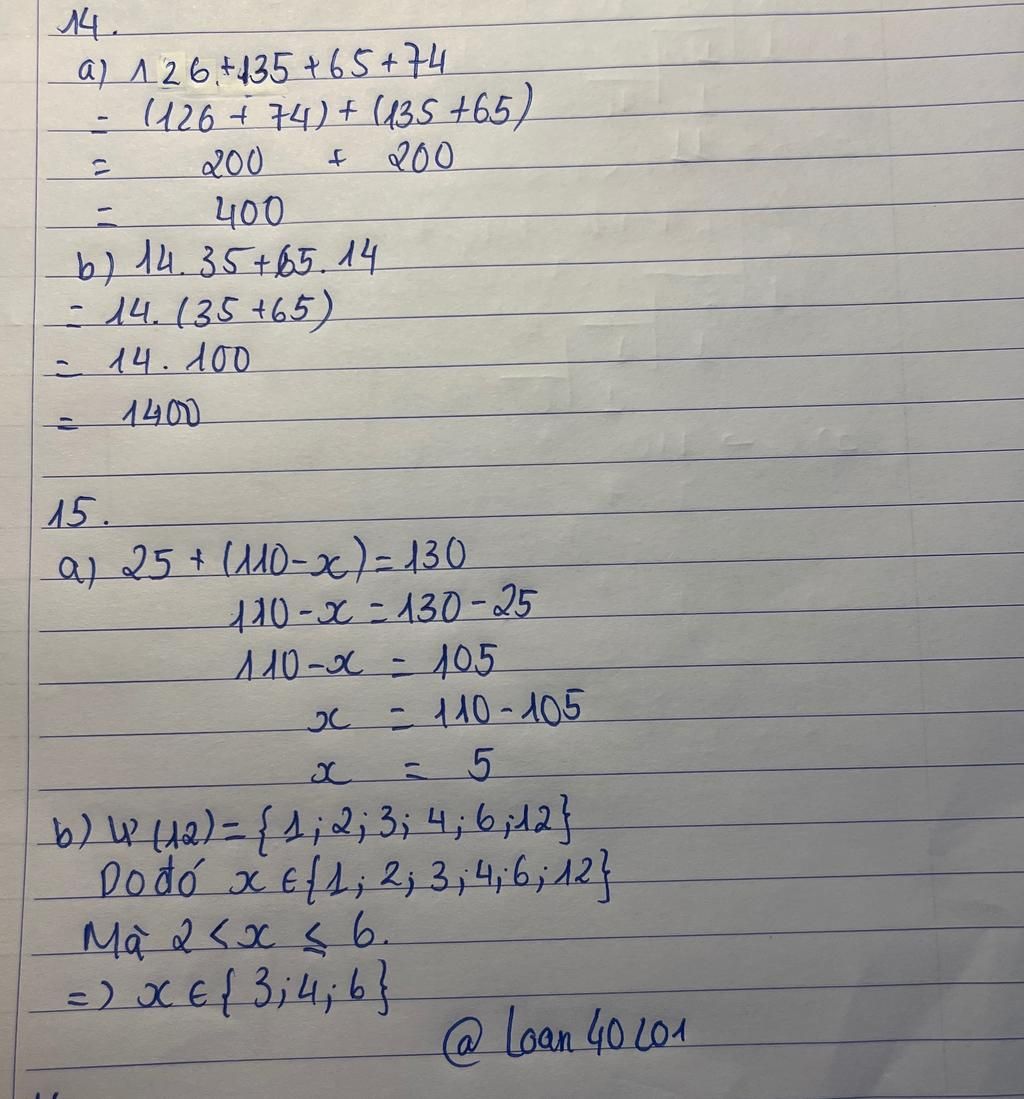 14.
a) 126 + 135 + 65 + 74
= (126 + 74) + (135 + 65)
= 200 + 200
= 400
b) 14. 35 + 65. 14
= 14. (35 + 65)
= 14 . 100
= 1400
15.
a) 25 + (110 - x) = 130
110 - x = 130 - 25
110 - x = 105
x = 110 - 105
x = 5
b) Ư(12) = {1; 2; 3; 4; 6; 12}
Do đó x ∈ {1; 2; 3; 4; 6; 12}
Mà 2 < x ≤ 6.
=> x ∈ { 3; 4; 6}
@ loan 40201